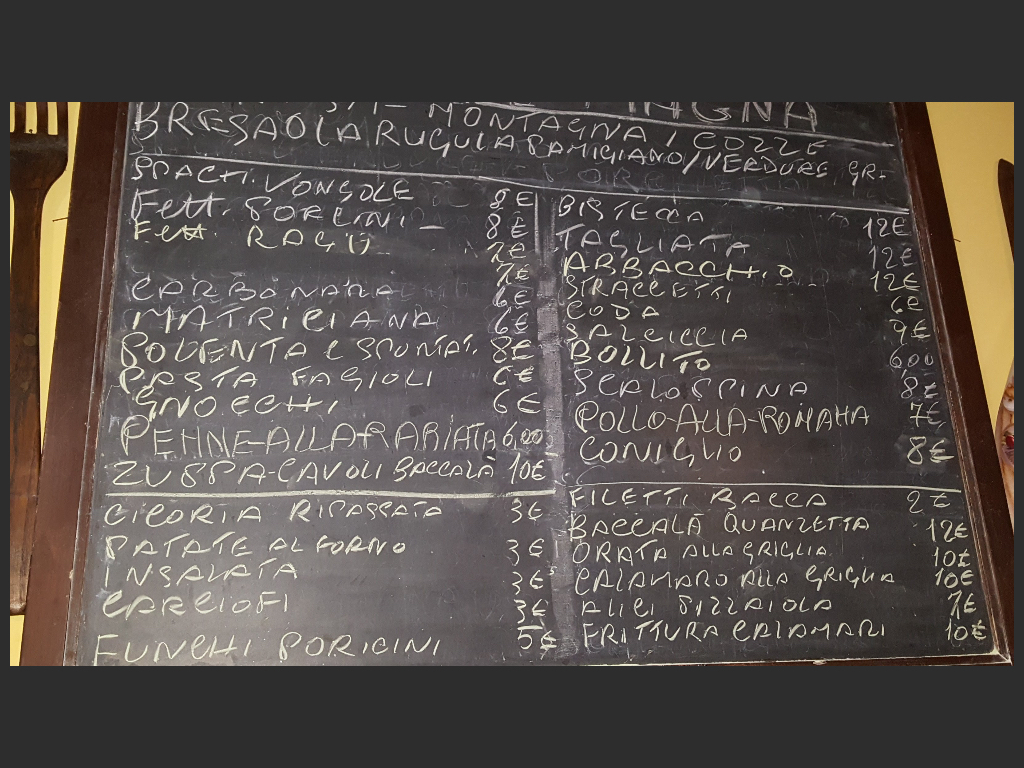 MONTAGNA / COZZE
BRESAOLA RUGULA PAMIGIANO/VERDURE GR-
SPAGH. VONGOLE 8€
Fett. PORCINI 8€
Fett RAGU 7€
7€
CARBONARA 6€
MATRICIANA 6€
POLENTA E SPUNTAT. 8€
PASTA FAGIOLI 6€
GNOCCHI 6€
PENNE-ALLA-RARIATA 6,00
ZUPPA-CAVOLI BACCALA 10€
BISTECCA 12€
TAGLIATA 12€
ABBACCHIO 12€
STRACCETTI 6€
CODA 9€
SALCICCIA 6,00
BOLLITO 8€
SCALOPPINA 7€
POLLO-ALLA-ROMANA 8€
CONIGLIO
CICORIA RIPASSATA 3€
PATATE AL FORNO 3€
INSALATA 3€
CARCIOFI 3€
FUNGHI PORICINI 5€
FILETTI BACCA 2€
BACCALÀ QUANZETTA 12€
ORATA ALLA GRIGLIA 10€
CALAMARO ALLA GRIGLIA 10€
ALICI PIZZAIOLA 7€
FRITTURA CALAMARI 10€